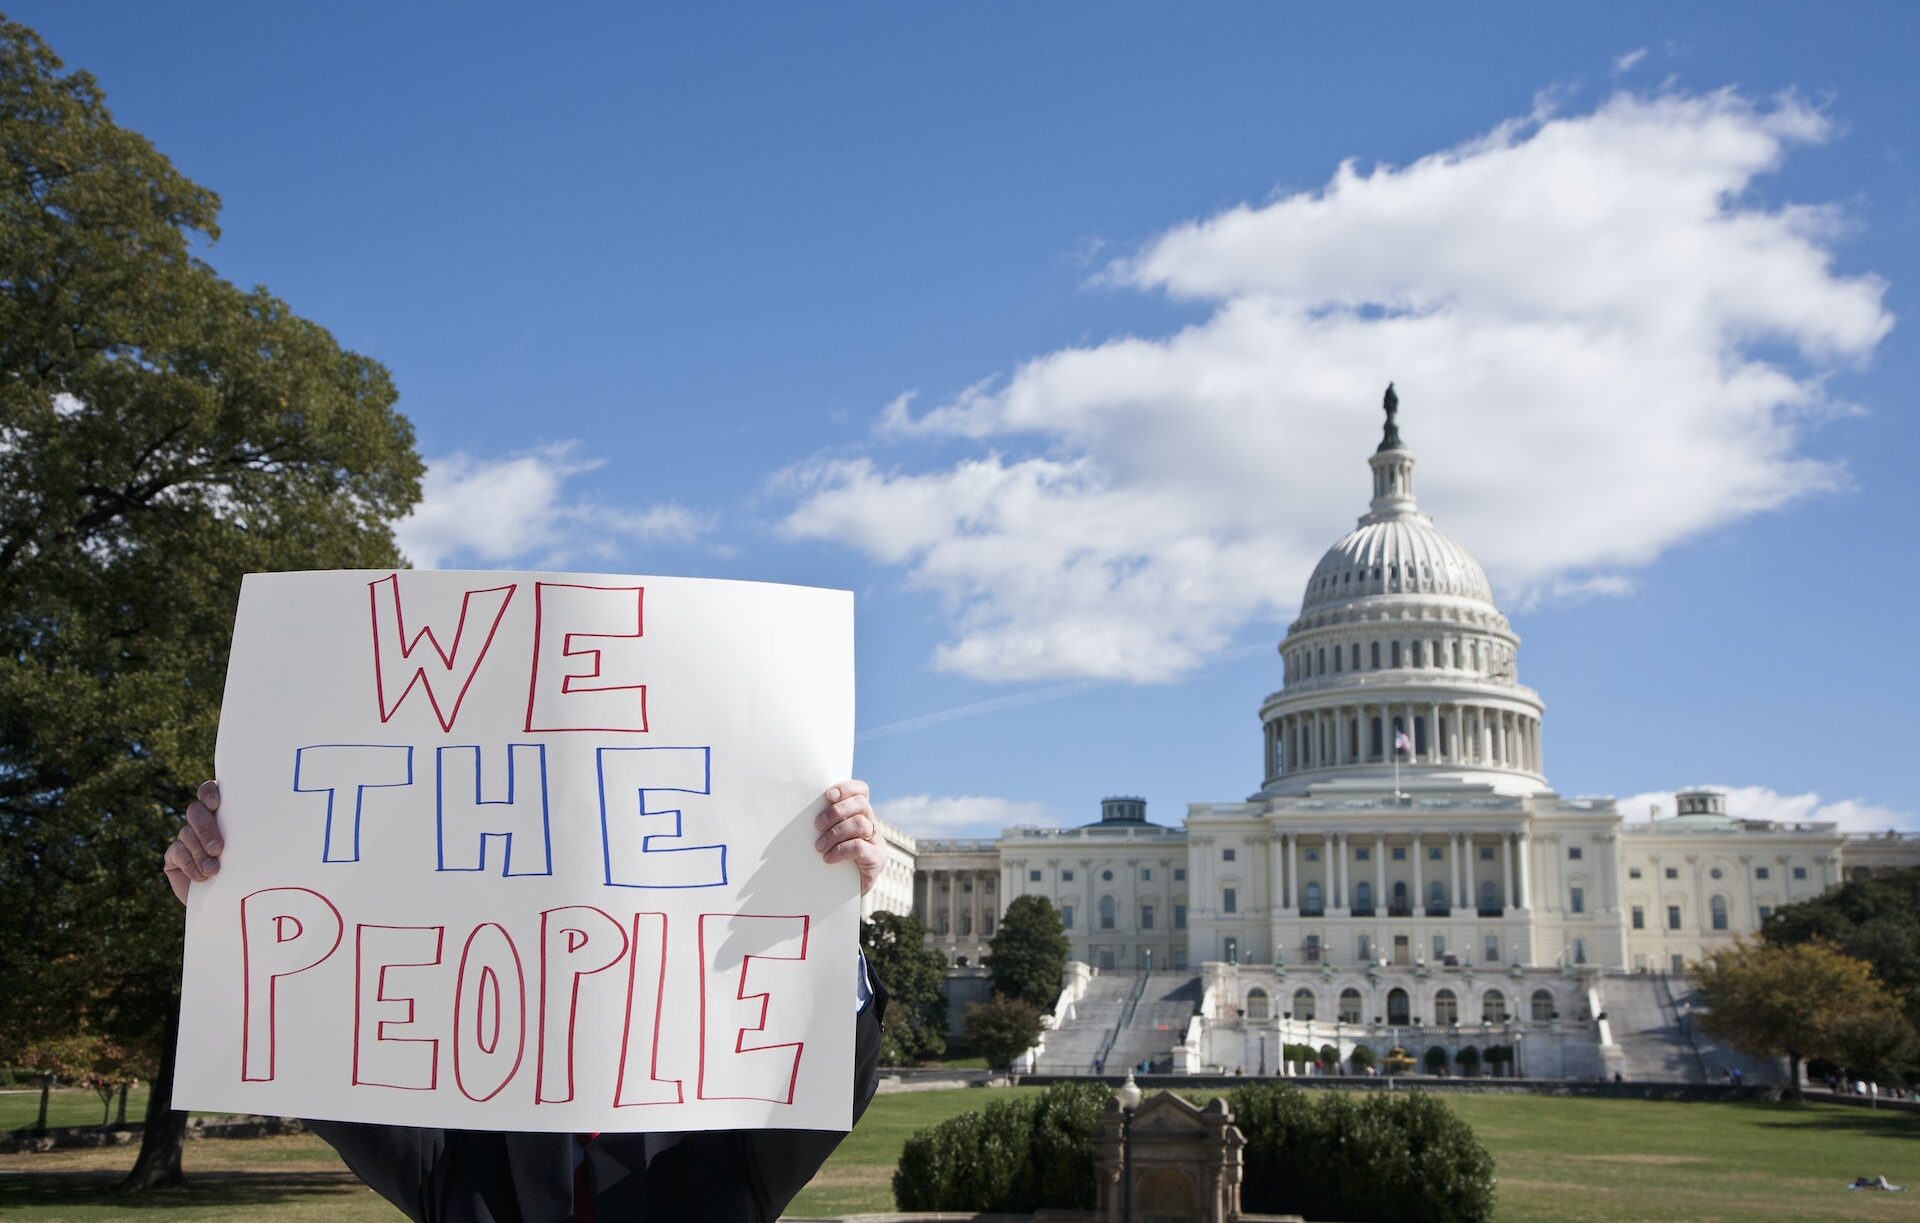 WE
THE
PEOPLE